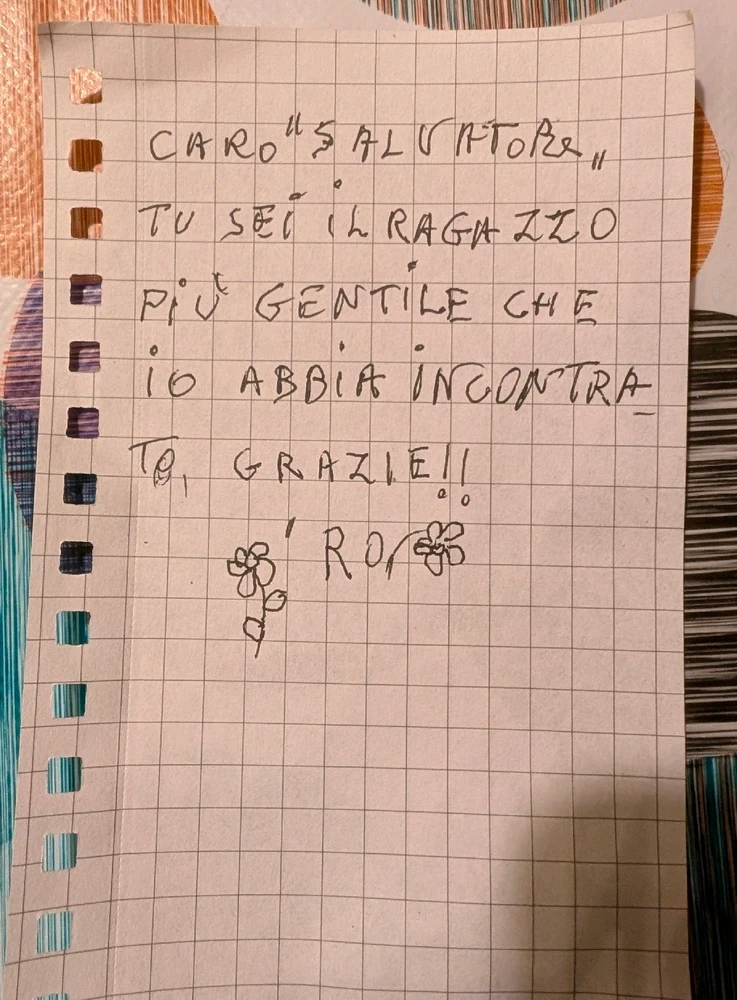 CARO "SALVATORE"
TU SEI IL RAGAZZO
PIÙ GENTILE CHE
IO ABBIA INCONTRA_
TO, GRAZIE!!
RO,